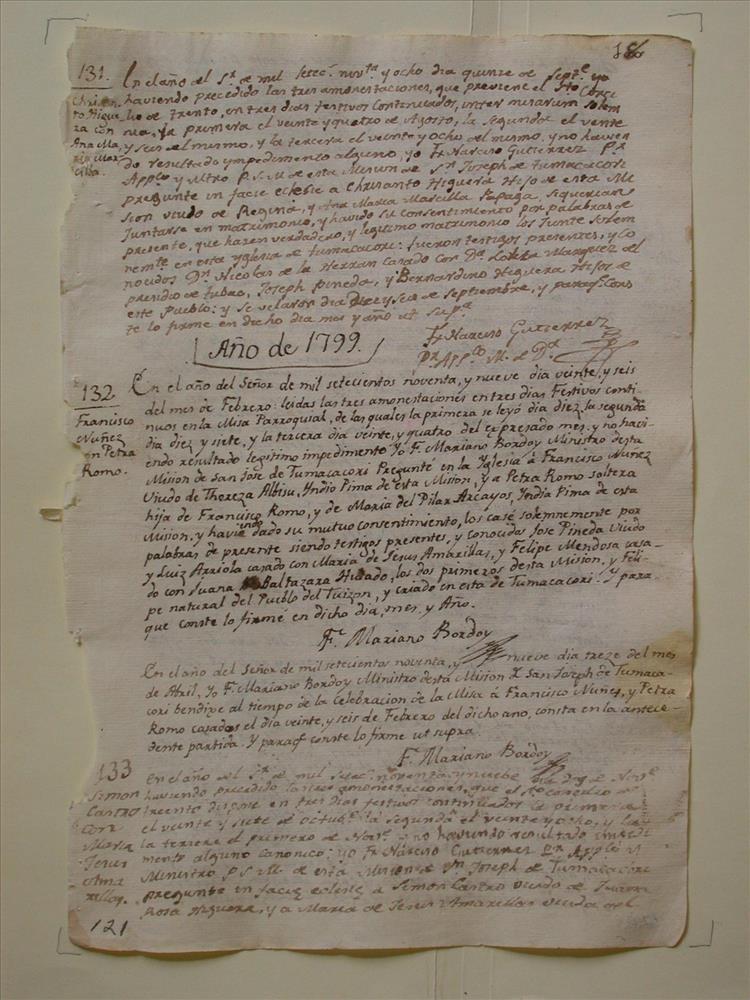 186
131.
Chrisan
to Higue
ra con
Ana Ma
ria Mar
cilla.
En el año del Sr. de mil setec.s nov.ta y ocho dia quinze de Sept.e yo
haviendo precedido las tres amonestaciones, que previene el Sto Conci
lio de Trento, en tres dias festivos continuados, inter misarum solem
nia, la primera el veinte y quatro de Agosto, la segunda el veinte
y seis del mismo, y la tercera el veinte y ocho del mismo, y no havien
do resultado ympedimento alguno, yo Fr. Narciso Gutierrez Pr.
App.co y Mtro P. S. M. de esta Mision de Sn. Joseph de Tumacacori
pregunte in facie eclesie a Chrisanto Higuera Hijo de esta Mi
sion viudo de Regina, y Ana Maria Marcilla Papaga, si querian
Juntarse en matrimonio, y havido su consentimiento por palabras de
presente, que hazen verdadero, y legitimo matrimonio los Junte solem
nem.te en esta yglesia de Tumacacori: fueron testigos presentes, y co
nocidos Dn. Nicolas de la Herran casado con Da. Loreta Marquez del
presidio de Tubac, Joseph Pineda, y Bernardino Higuera Hijos de
este Pueblo: y se velaron dia Diez y seis de Septiembre, y paraq.e cons
te lo firme en dicho dia mes y año ut sup.a
Fr. Narciso Gutierrez
Pr. App.co M. de Dn.
Año de 1799.
132.
Francisco
Nuñez
con Petra
Romo.
En el año del Señor de mil setecientos noventa, y nueve dia veinte, y seis
del mes de Febrero: leidas las tres amonestaciones en tres dias Festivos conti-
nuos en la Misa Parroquial, de las quales la primera se leyó dia diez, la segunda
dia diez y siete, y la tercera dia veinte, y quatro del expresado mes, y no havi-
endo resultado legitimo impedimento Yo F. Mariano Bordoy Ministro desta
Mision de san Jose de Tumacacori Pregunté en la Yglesia á Francisco Nuñez
Viudo de Thereza Albisu, Yndio Pima de esta Mision, y a Petra Romo soltera
hija de Francisco Romo, y de Maria del Pilar Arcayos, Yndia Pima de esta
Mision, y haviendo dado su mutuo consentimiento, los casé solemnemente por
palabras de presente siendo testigos presentes, y conocidos Jose Pineda Viudo
y Luiz Arriola casado con Maria de Jesus Amarillas, y Felipe Mendosa casa-
do con Juana Baltazara Hurado, los dos primeros desta Mision, y Feli-
pe natural del Pueblo del Tuizon, y criado en esta de Tumacacori. Y para-
que conste lo firmé en dicho dia, mes, y Año.
Fr. Mariano Bordoy
En el año del Señor de mil setecientos noventa, y nueve dia treze del mes
de Abril, Yo F. Mariano Bordoy Ministro desta Mision de San Joseph de Tumaca-
cori bendize al tiempo de la Celebracion de la Misa á Francisco Nuñes, y Petra
Romo casados el dia veinte, y seis de Febrero del dicho ano, consta en la antece-
dente partida. Y paraq.e conste lo firme ut supra.
F. Mariano Bordoy
133
Simon
Castro
con
Maria
Jesus
Ama
rillas.
En el año del Sr. de mil setec.s noventa y nuebe dia dos de Nov.e
haviendo precedido las tres amonestaciones, que el Sto. concilio de
treento dispone en tres dias festivos continuados la primera
el veinte y siete de octub.e la segunda el veinte y ocho, y
la tercera el primero de Nov.e y no haviendo resultado impedi
mento alguno canonico: yo Fr. Narciso Gutierrez Pr. App.co y
Ministro P. S. M. de esta Mision de Sn. Joseph de Tumacacori
pregunte in facie eclesie a Simon Castro viudo de Juana
Rosa Higuera, y a Maria de Jesus Amarillas viuda del
121